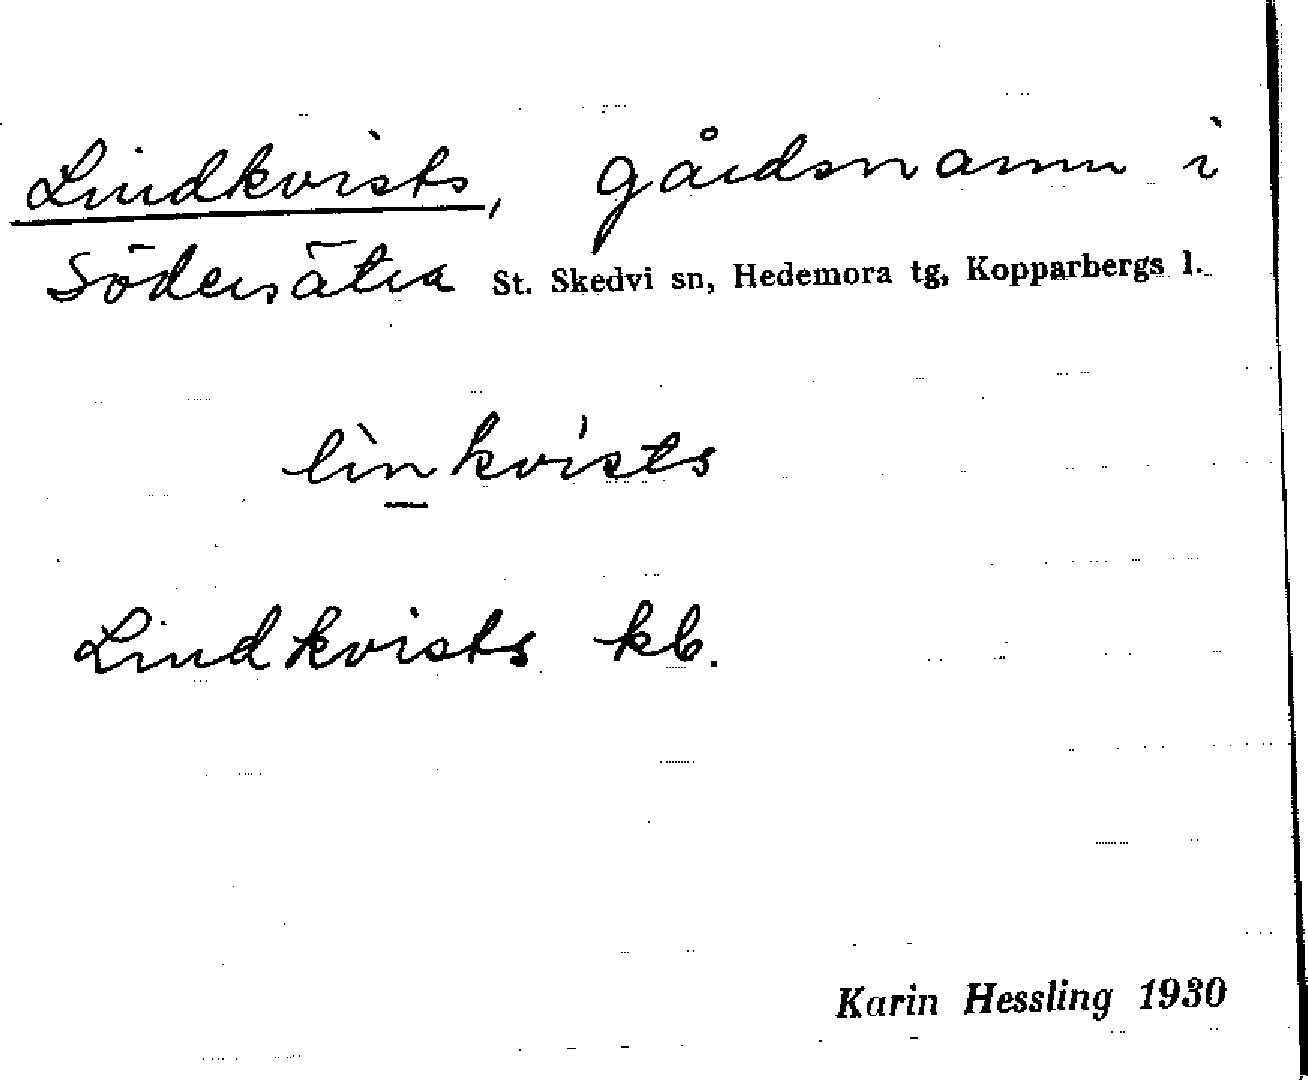 Lindkvists, gårdsnamn i
Södersätra St. Skedvi sn, Hedemora tg, Kopparbergs l.
lìnkvísts
Lindkvists kb.
Karin Hessling 1930